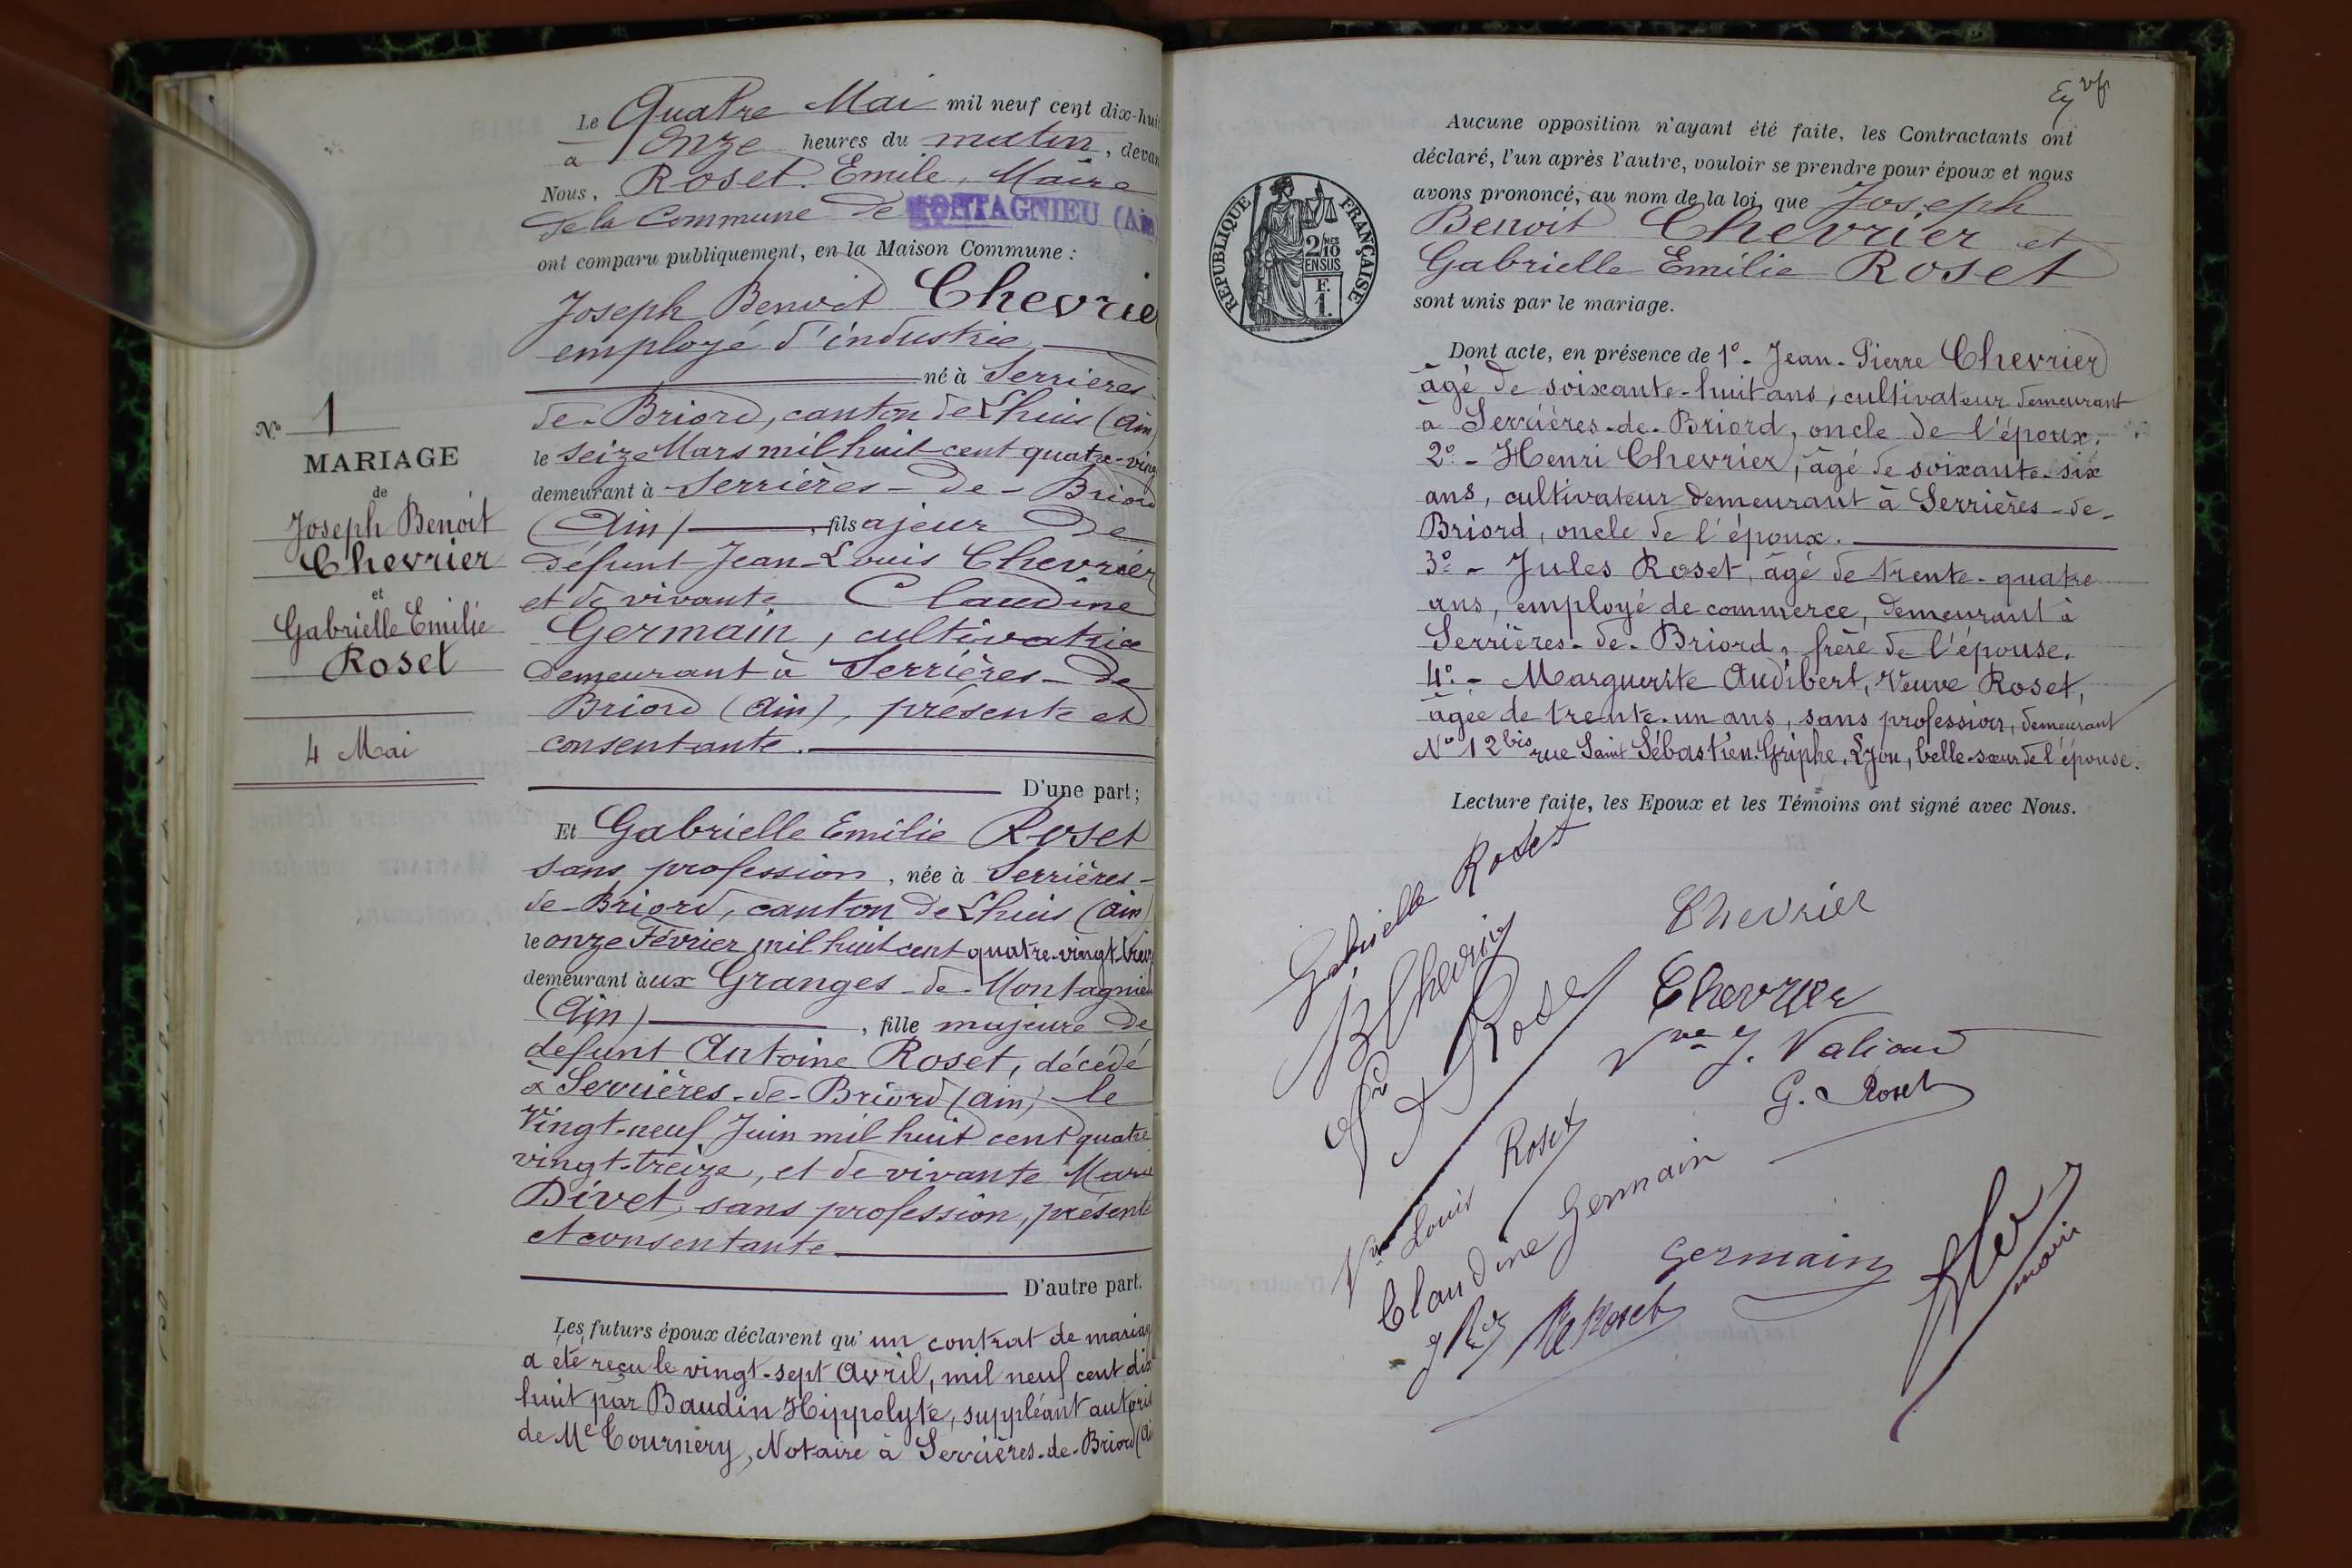 Le Quatre Mai mil neuf cent dix-huit
à Onze heures du matin, devan
Nous, Roset Emile, Maire
de la Commune de MONTAGNIEU (Ain
ont comparu publiquement, en la Maison Commune :
Joseph Benoit Chevrie
employé d'industrie
né à Serrières-
de-Briord, canton de Lhuis (Ain)
le seize Mars mil huit cent quatre-ving
demeurant à Serrières-de-Briord
(Ain), fils majeur de
défunt Jean-Louis Chevrier
et de vivante Claudine
Germain, cultivatrice
demeurant à Serrières-de
Briord (Ain), présente et
consentante.
D'une part;
Et Gabrielle Emilie Roset
sans profession, née à Serrières-
de-Briord, canton de Lhuis (Ain)
le onze Février mil huit cent quatre-vingt-treiz
demeurant à aux Granges-de-Montagnieu
(Ain), fille majeure de
défunt Antoine Roset, décédé
à Serrières-de-Briord (Ain) le
Vingt-neuf Juin mil huit cent quatre
vingt-treize, et de vivante Marie
Divet, sans profession, présente
et consentante
D'autre part.
Les futurs époux déclarent qu'un contrat de mariag
a été reçu le vingt-sept Avril, mil neuf cent dix
huit par Baudin Hippolyte, suppléant autoris
de Me Tournery, Notaire à Serrières-de-Briord (Ai
N° 1
MARIAGE
de
Joseph Benoit
Chevrier
et
Gabrielle Emilie
Roset
4 Mai
Aucune opposition n'ayant été faite, les Contractants ont
déclaré, l'un après l'autre, vouloir se prendre pour époux et nous
avons prononcé, au nom de la loi, que Joseph
Benoit Chevrier et
Gabrielle Emilie Roset
sont unis par le mariage.
REPUBLIQUE FRANÇAISE
2/10
EN SUS
F.
1.
Dont acte, en présence de 1° - Jean-Pierre Chevrier
âgé de soixante-huit ans, cultivateur demeurant
à Serrières-de-Briord, oncle de l'époux.
2° - Henri Chevrier, âgé de soixante-six
ans, cultivateur demeurant à Serrières-de-
Briord, oncle de l'époux.
3° - Jules Roset, âgé de trente-quatre
ans, employé de commerce, demeurant à
Serrières-de-Briord, frère de l'épouse.
4° - Marguerite Audibert, Veuve Roset,
âgée de trente-un ans, sans profession, demeurant
N° 12 bis rue Saint Sébastien Griphe, Lyon, belle-sœur de l'épouse.
Lecture faite, les Epoux et les Témoins ont signé avec Nous.
Gabrielle Roset
Chevrier
Chevrier
Roset
Vve J. Valioud
G. Roset
Vve Louis Roset
Claudine Germain
Germain
Roset
maire